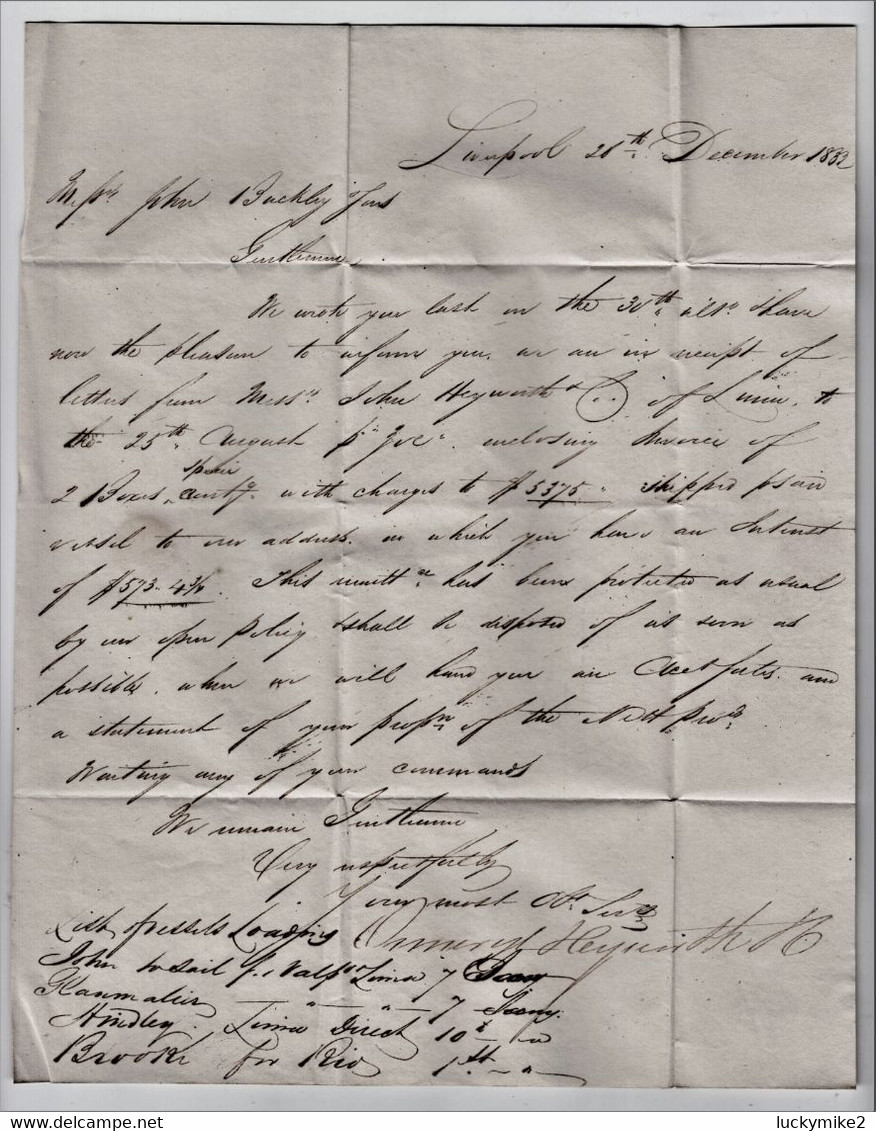 Liverpool 26th December 1832
Messrs John Buckley & Sons
Gentlemen
We wrote you last on the 30th ulto. & have
now the pleasure to inform you, we are in receipt of
letters from Messrs. John Heyworth & Co. of Lima, to
the 25th August enclosing Invoice of
2 Boxes with charges to $5375 shipped p said
vessel to our address in which you have an Interest
of $573-4¾. This remittce has been protected as usual
by our open Policy & shall be disposed of as soon as
possible, when we will hand you an Acct Sales and
a statement of your propn of the Nett Prods.
Waiting any of your commands
We remain Gentlemen
Very respectfully
Your most Obt Servts
Ormerod Heyworth & Co
List of vessels Loading
John to sail for Valpo & Lima 7 Jany
" " 7 Jany.
Hindley, Lima Direct 10th "
Brooke for Rio 1st "
luckymike2